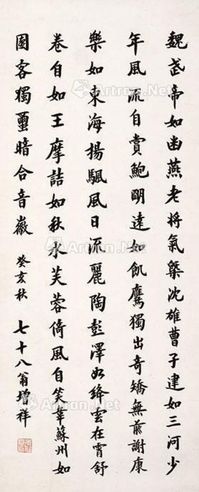 魏武帝如幽燕老將氣槩沈雄曹子建如三河少
年風流自賞鮑明遠如飢鷹獨出奇矯無前謝康
樂如東海揚颿風日流麗陶彭澤如絳雲在霄舒
卷自如王摩詰如秋水芙蓉倚風自笑韋蘇州如
園客獨蠒暗合音徽 癸亥秋 七十八翁增祥